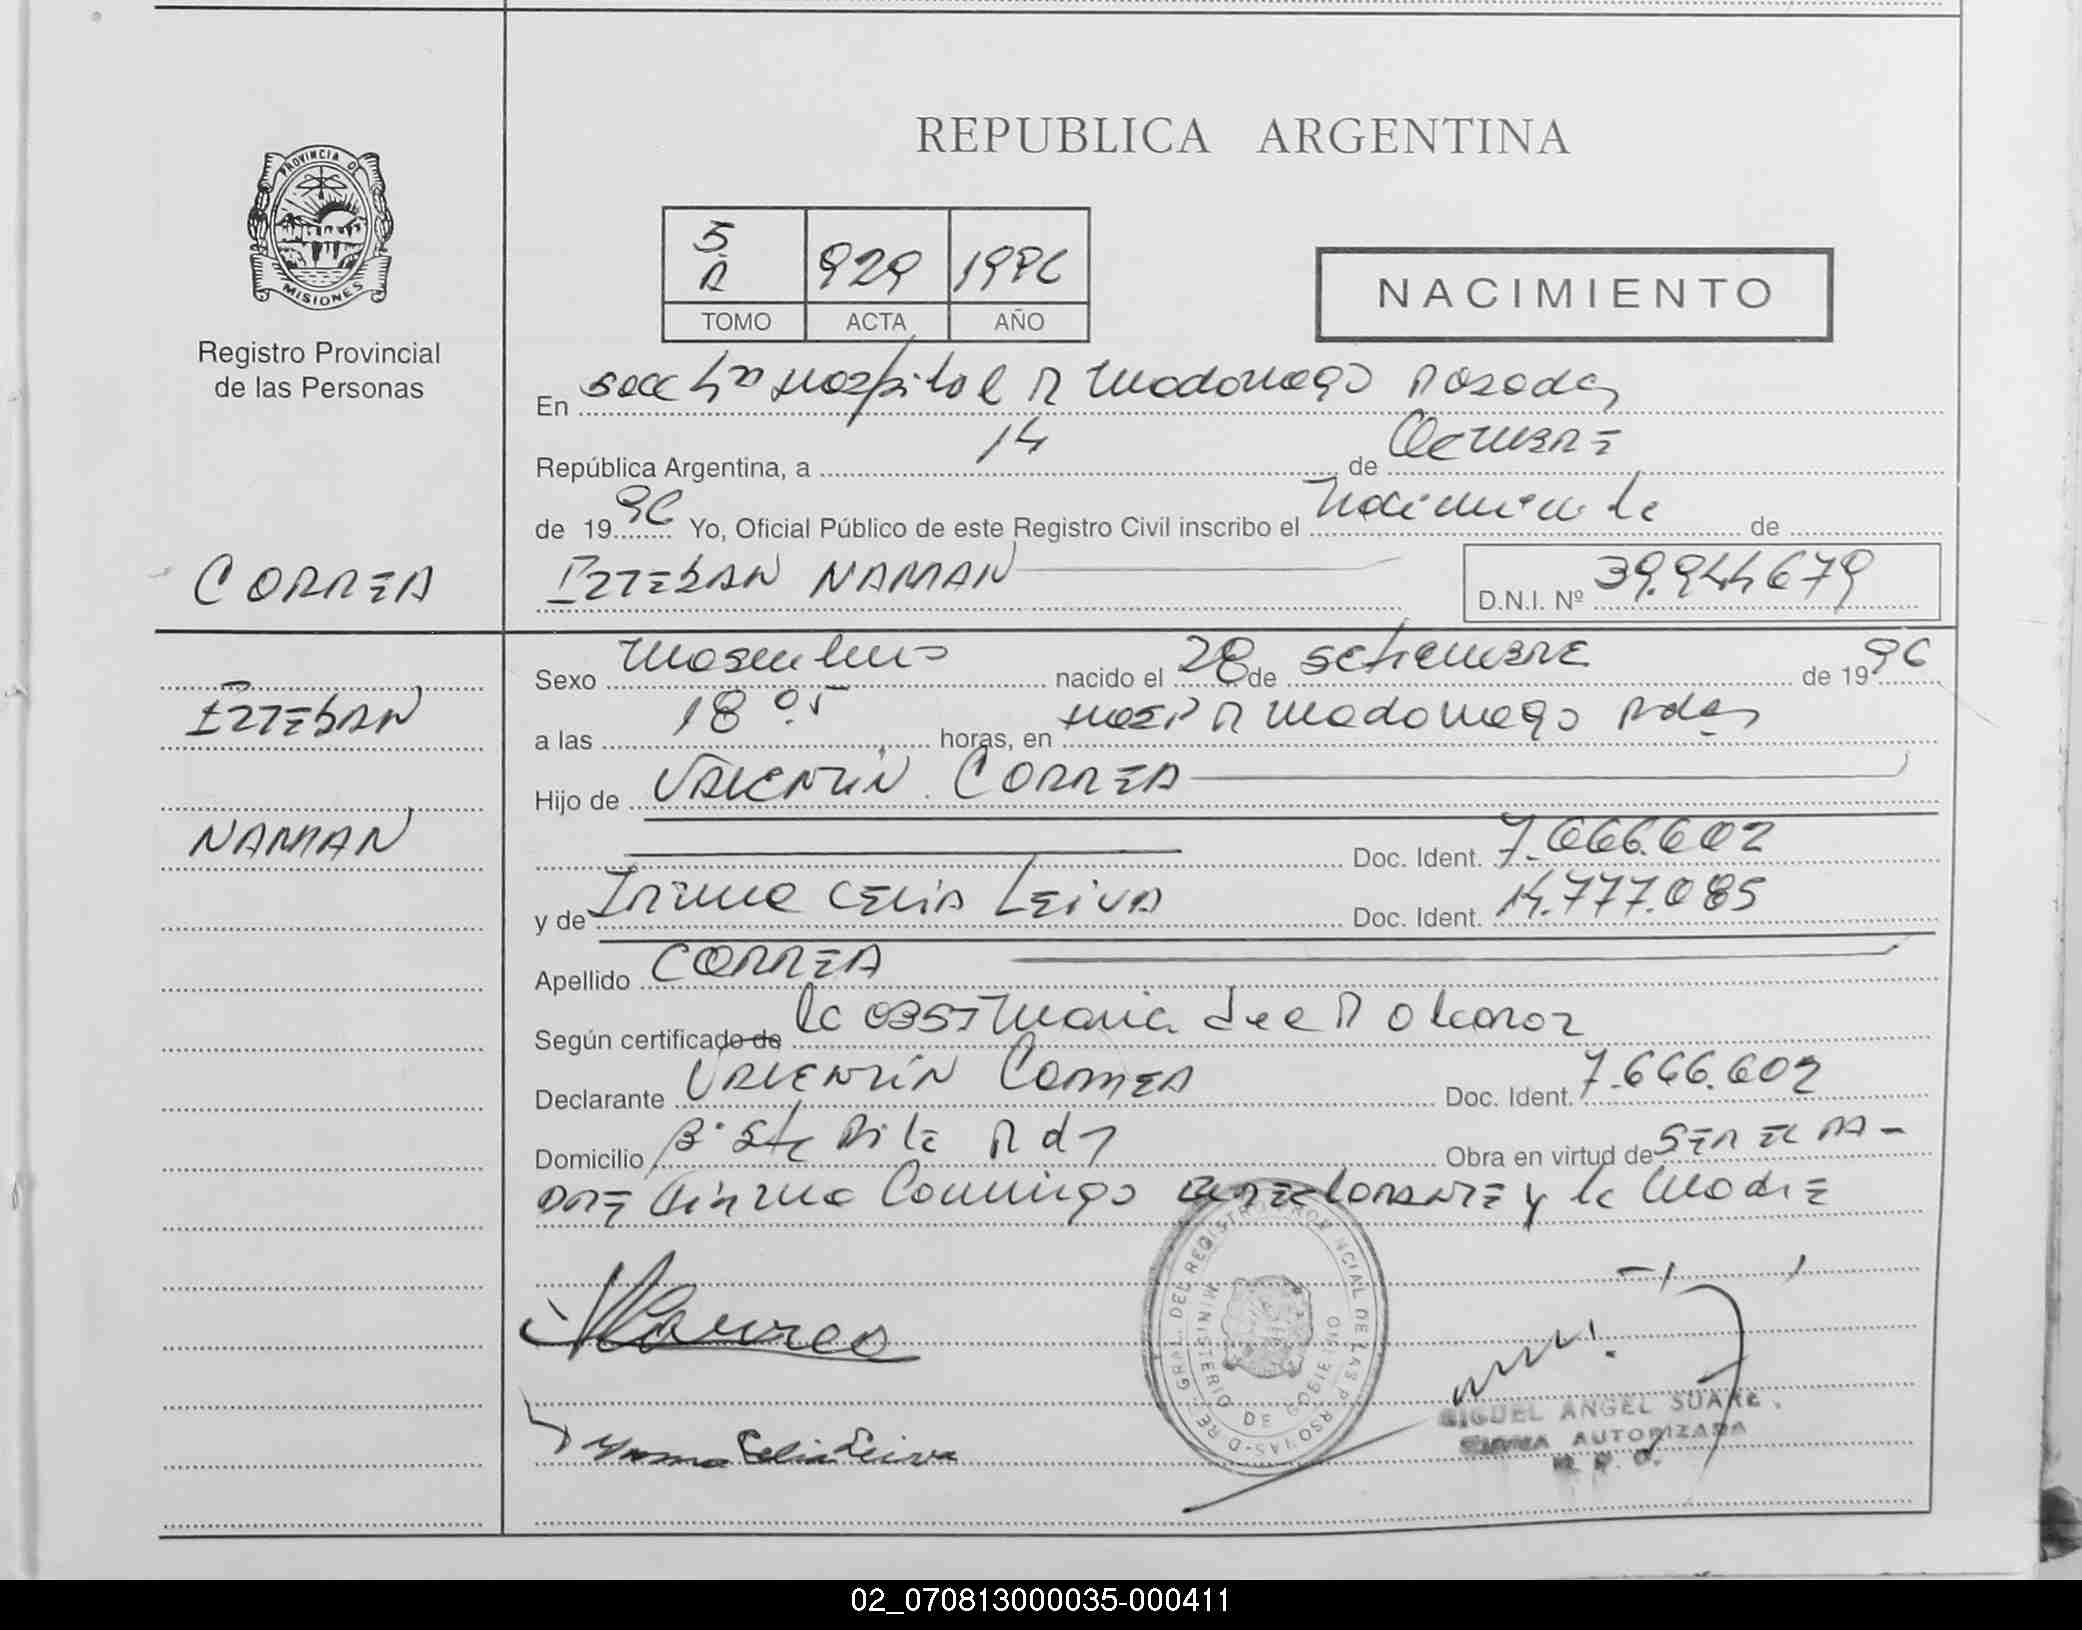 REPUBLICA ARGENTINA
PROVINCIA D
MISIONES
Registro Provincial
de las Personas
5 929 1996
TOMO ACTA AÑO
NACIMIENTO
En Secc Hospital R Madariaga Posadas
República Argentina, a 14 de Octubre
de 1996 Yo, Oficial Público de este Registro Civil inscribo el Nacimiento de
CORREA
ESTEBAN NAMAN D.N.I. Nº 39.944679
Sexo Masculino nacido el 28 de Setiembre de 1996
ESTEBAN
a las 18 05 horas, en Hosp R Madariaga Pdas
Hijo de VALENTIN CORREA
NAMAN
Doc. Ident. 7.666.602
y de Irma CELIA LEIVA Doc. Ident. 14.777.085
Apellido CORREA
Según certificado de la Obst Maria del
Declarante VALENTIN Correa Doc. Ident. 7.666.602
Domicilio Bº Sta Rita Pdas Obra en virtud de SER EL PA-
DRE Firma Conmigo declarante y la Madre
Correa
Yrma Celia Leiva
GRAL. DEL REGISTRO PROVINCIAL DE LAS PERSONAS
MINISTERIO DE GOBIERNO
MIGUEL ANGEL SUAREZ
FIRMA AUTORIZADA
R. P. P.
02_070813000035-000411